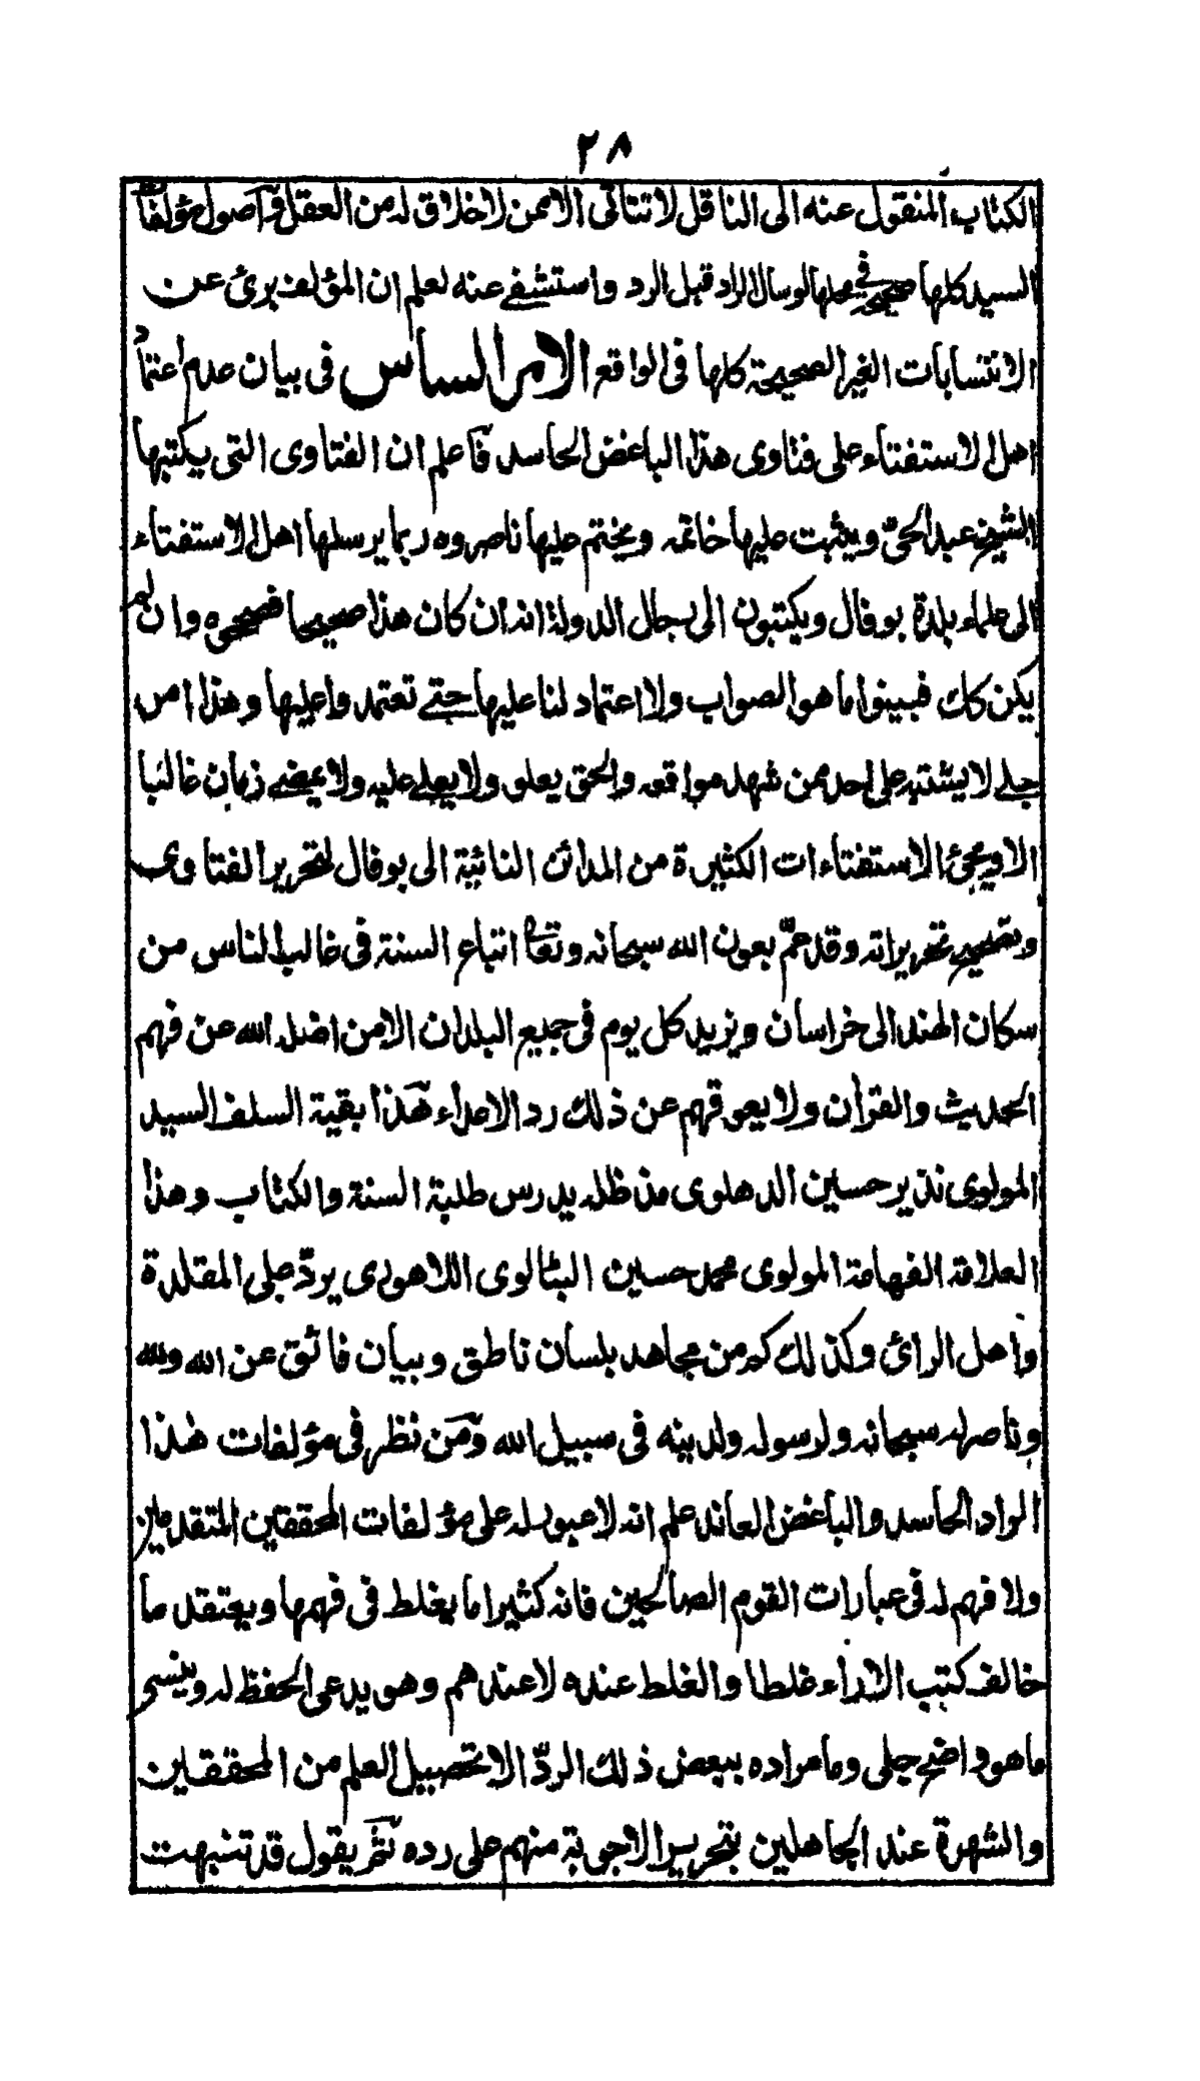 ٢٨
الكتاب المنقول عنه الى الناقل لا تتأتى الا ممن لا خلاق له من العقل وآصول مؤلفات
السيد كلها صحيحة في محلها لو سال الراد قبل الرد واستشفى عنه لعلم ان المؤلف برئ عن
الانتسابات الغير الصحيحة كلها فى الواقع الامر السادس فى بيان عدم اعتماد
اهل الاستفتاء على فتاوى هذا الباغض الحاسد فآعلم ان الفتاوى التى يكتبها
الشيخ عبد الحىّ ويثبت عليها خاتمه ويختم عليها ناصروه ربما يرسلها اهل الاستفتاء
الى علماء بلدة بوفال ويكتبون الى رجال الدولة انه ان كان هذا صحيحا فصححوه وان لم
يكن كك فبينوا ما هو الصواب ولا اعتماد لنا عليها حتى تعتمدوا عليها وهذا امر
جلے لا يشتبه على احد ممن شهد مواقعه والحق يعلو ولا يعلى عليه ولا يمضے زمان غالبا
الا ويجئ الاستفتاءات الكثيرة من المدائن النائية الى بوفال لتحرير الفتاوى
وتصحيح تحريراته وقد عمّ بعون الله سبحانه وتعا اتباع السنة فى غالب الناس من
سكان الهند الى خراسان ويزيد كل يوم فى جميع البلدان الا من اضله الله عن فهم
الحديث والقرآن ولا يعوقهم عن ذلك رد الاعداء هٓذا بقية السلف السيد
المولوى نذير حسين الدهلوى مد ظله يدرس طلبة السنة والكتاب وهذا
العلامة الفهامة المولوى محمد حسين البثالوى اللاهورى يردّ على المقلدة
واهل الرائ وكذلك كم من مجاهد بلسان ناطق وبيان فائق عن الله ولله
وناصر له سبحانه ولرسوله ولدينه فى سبيل الله ومٓن نظر فى مؤلفات هذا
الراد الحاسد والباغض المعاند علم انه لا عبور له على مؤلفات المحققين المتقدمين
ولا فهم له فى عبارات القوم الصالحين فانه كثيرا ما يغلط فى فهمها ويعتقد ما
خالف كتب الاراء غلطا والغلط عنده لا عندهم وهو يدعى الحفظ له وينسى
ما هو واضح جلى وما مراده ببعض ذلك الردّ الا تحصيل العلم من المحققين
والشهرة عند الجاهلين بتحرير الاجوبة منهم على رده ثمٓ يقول قد تنبهت